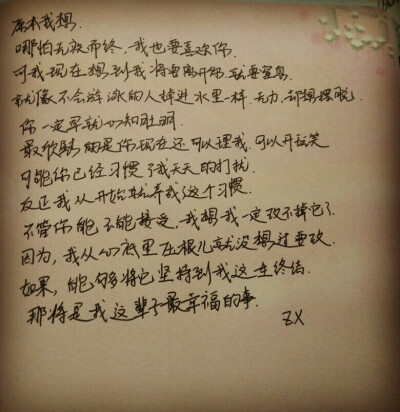 原本我想.
哪怕无疾而终,我也要喜欢你.
可我现在想到我将要离开你,就要窒息.
就像不会游泳的人掉进水里一样,无力,却想摆脱.
你一定早就心知肚明.
最欣慰的是你现在还可以理我,可以开玩笑
可能你已经习惯了我天天的打扰.
反正我从开始就养我这个习惯.
不管你能不能接受,我想我一定改不掉它了.
因为,我从心底里压根儿就没想过要改.
如果,能够将它坚持到我这生终结.
那将是我这辈子最幸福的事.
ZX